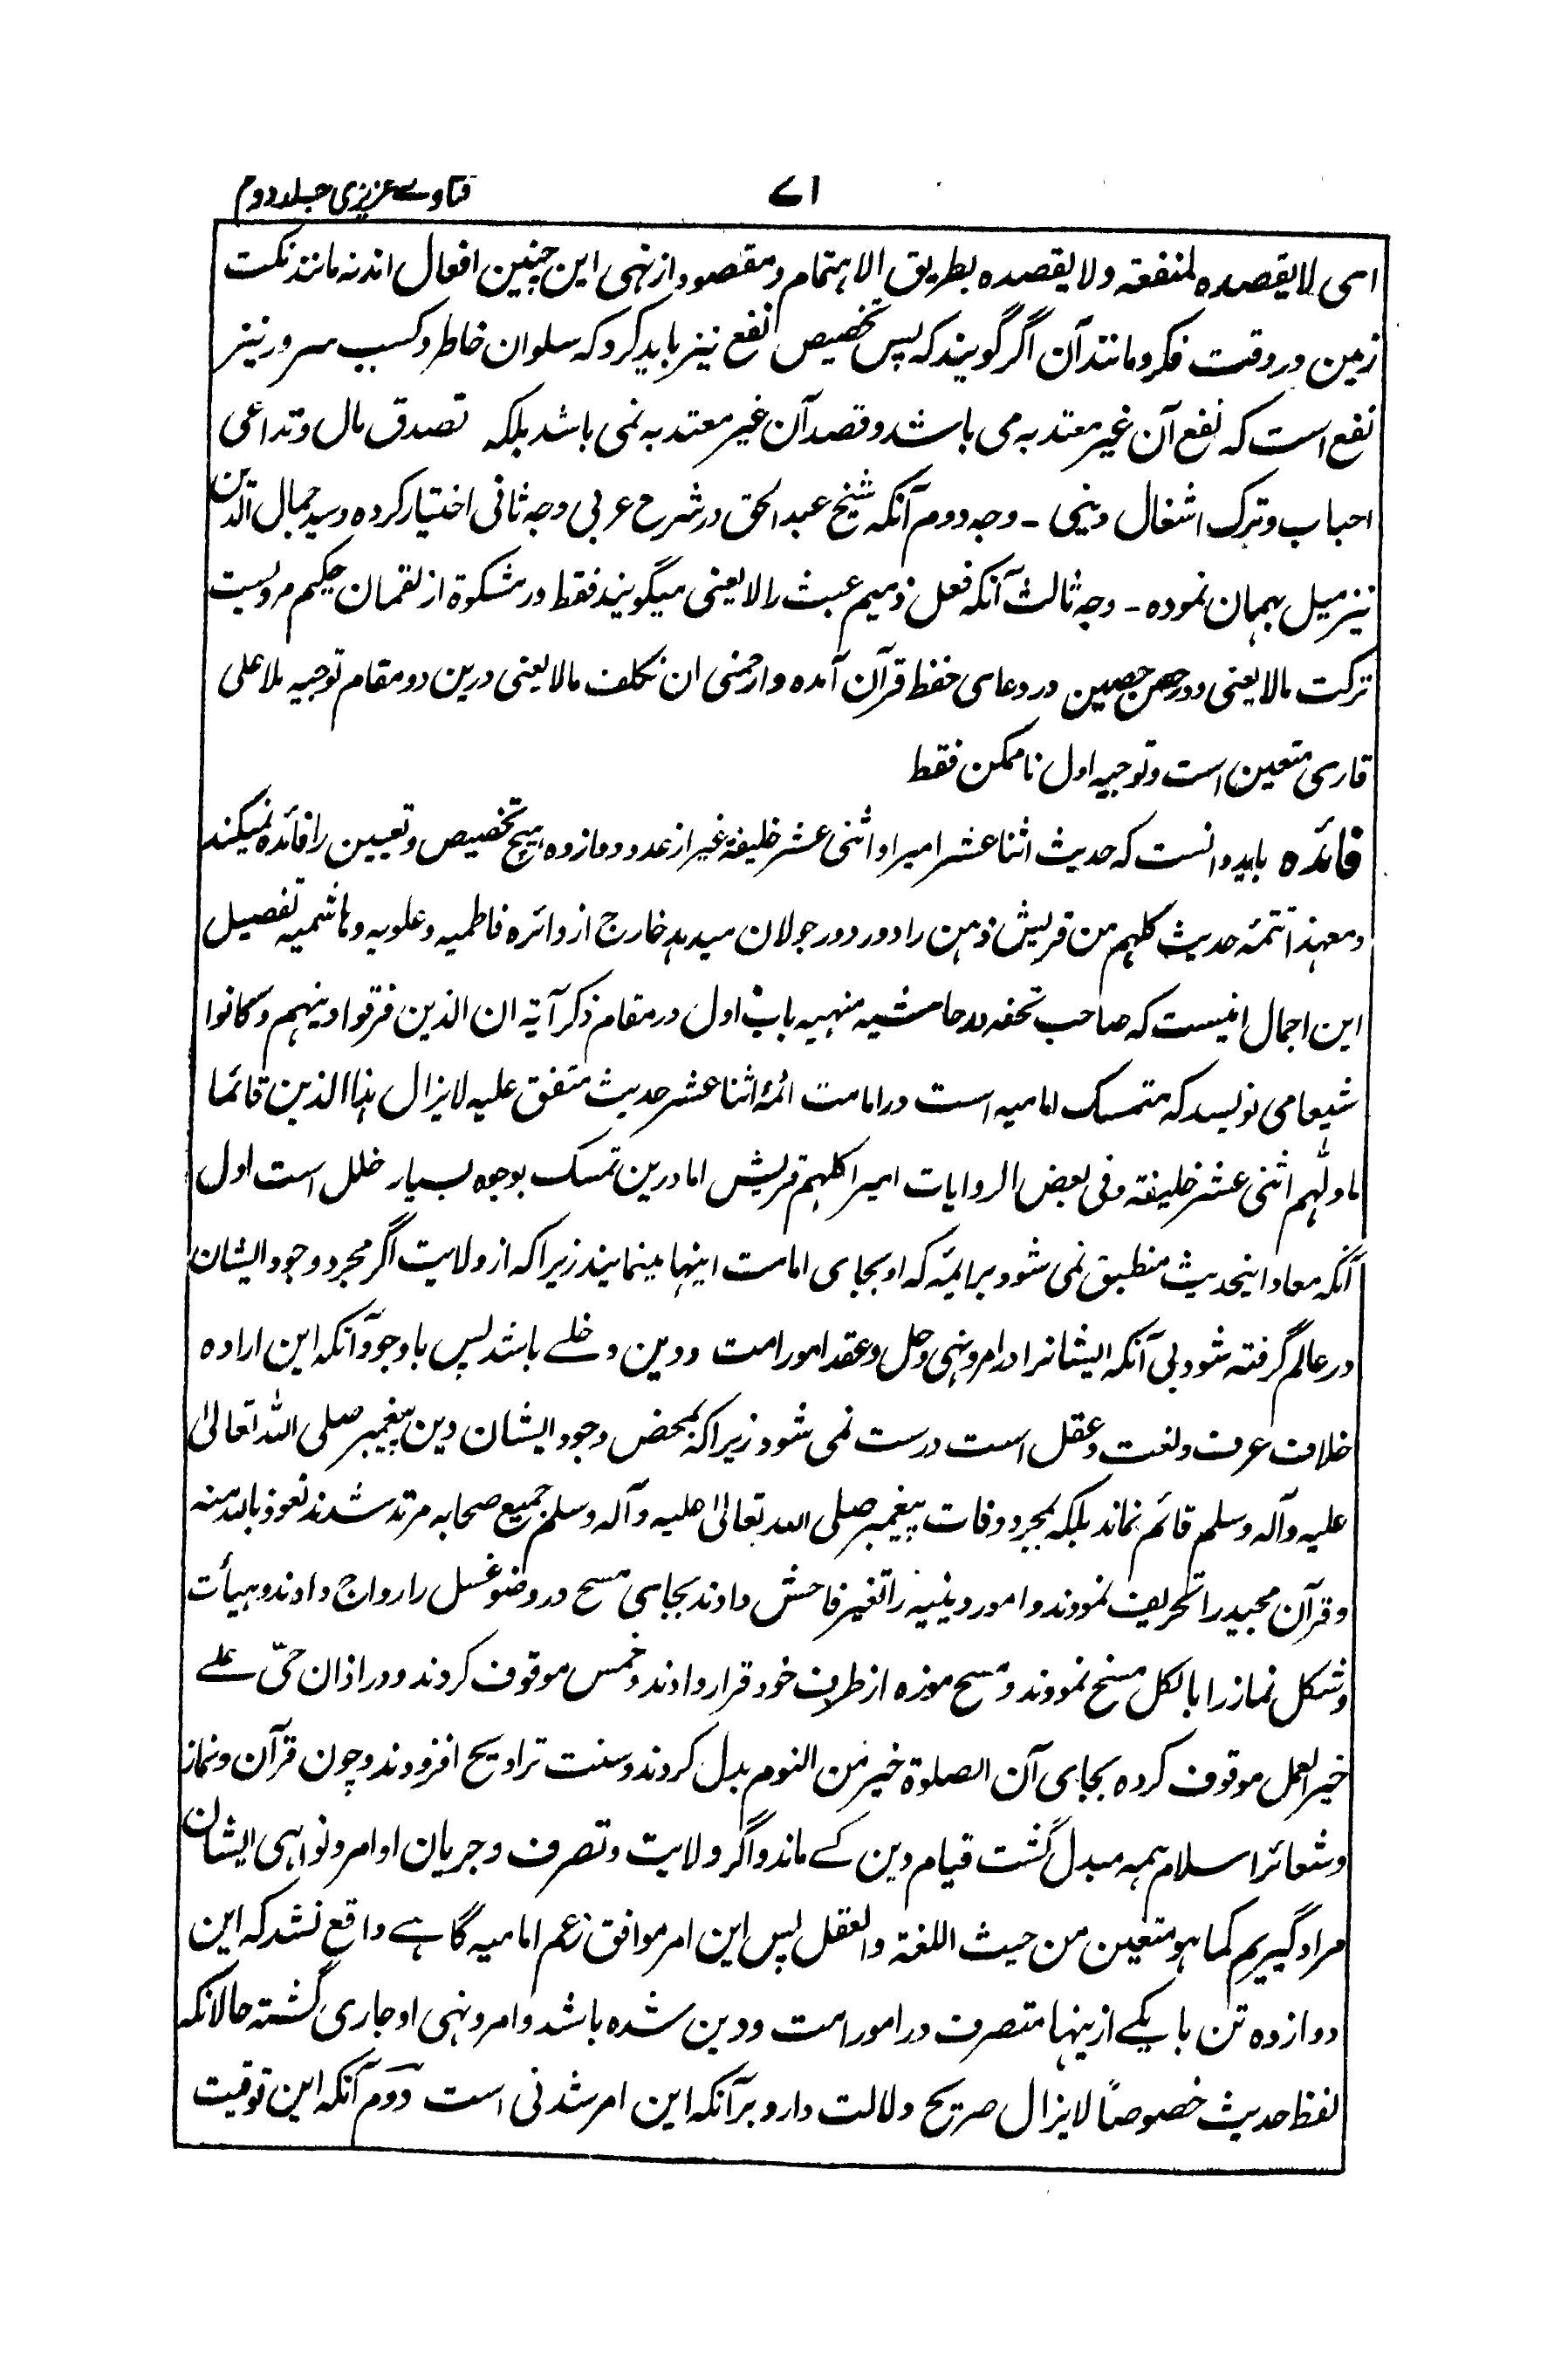 فتاوے عزیزی جلد دوم
۷۱
اسی لا یقصده لمنفعة ولا یقصده بطریق الاہتمام و مقصود از نہی این چنین افعال اند نہ مانند نکت
زمین در وقت فکر و مانند آن اگر گویند کہ پس تخصیص نفع نیز باید کرد کہ سلوان خاطر و کسب سرور نیز
نفع است کہ نفع آن غیر معتد بہ می باشد و قصد آن غیر معتد بہ نمی باشد بلکہ تصدق مال و تداعی
احباب و ترک اشغال دینی - وجہ دوم آنکہ شیخ عبد الحق در شرح عربی وجہ ثانی اختیار کردہ و سید جمال الدین
نیز میل بہمان نمودہ - وجہ ثالث آنکہ فعل ذمیم عبث را لا یعنی میگویند فقط در مشکوة از لقمان حکیم مرویست
ترکت ما لا یعنی و در حصن حصین در دعای حفظ قرآن آمدہ وارحمنی ان تکلف ما لا یعنی درین دو مقام توجیہ ملا علی
قاری متعین است و توجیہ اول ناممکن فقط
فائدہ باید دانست کہ حدیث اثنا عشر امیرا و اثنی عشر خلیفة غیر از عدد دوازدہ ہیچ تخصیص و تعیین را فائدہ نمیکند
و معہذا تتمۂ حدیث کلہم من قریش ذہن را دور دور جولان میدہد خارج از دائرہ فاطمیہ و علویہ و ہاشمیہ تفصیل
این اجمال اینست کہ صاحب تحفہ در حاشیہ منہیہ باب اول در مقام ذکر آیة ان الذین فرقوا دینہم و کانوا
شیعا می نویسد کہ متمسک امامیہ است در امامت ائمۂ اثنا عشر حدیث متفق علیہ لا یزال ہذا الدین قائما
ما ولّٰہم اثنی عشر خلیفة و فی بعض الروایات امیرا کلہم قریش اما درین تمسک بوجوہ بسیار خلل است اول
آنکہ معاد اینحدیث منطبق نمی شود بر ائمہ کہ او بجای امامت اینہا مینمایند زیرا کہ از ولایت اگر مجرد وجود ایشان
در عالم گرفتہ شود بی آنکہ ایشانرا در امر و نہی و حل و عقد امور امت و دین دخلے باشد پس با وجود آنکہ این ارادہ
خلاف عرف و لغت و عقل است درست نمی شود زیرا کہ بمحض وجود ایشان دین پیغمبر صلی اللہ تعالیٰ
علیہ و آلہ وسلم قائم نماند بلکہ بمجرد وفات پیغمبر صلی اللہ تعالیٰ علیہ و آلہ وسلم جمیع صحابہ مرتد شدند نعوذ باللہ منہ
و قرآن مجید را تحریف نمودند و امور دینیہ را تغیر فاحش دادند بجای مسح در وضو غسل را رواج دادند و ہیأت
و شکل نماز را بالکل مسخ نمودند و مسح موزہ از طرف خود قرار دادند و خمس موقوف کردند و در اذان حیّ علے
خیر العمل موقوف کردہ بجای آن الصلوة خیر من النوم بدل کردند و سنت تراویح افزودند و چون قرآن و نماز
و شعائر اسلام ہمہ مبدل گشت قیام دین کے ماند و اگر ولایت و تصرف و جریان اوامر و نواہی ایشان
مراد گیریم کما ہو متعین من حیث اللغة والعقل پس این امر موافق زعم امامیہ گاہے واقع نشد کہ این
دوازدہ تن با یکے ازینہا متصرف در امور امت و دین شدہ باشد و امر و نہی او جاری گشتہ حالانکہ
لفظ حدیث خصوصاً لا یزال صریح دلالت دارد بر آنکہ این امر شدنی است دوم آنکہ این توقیت